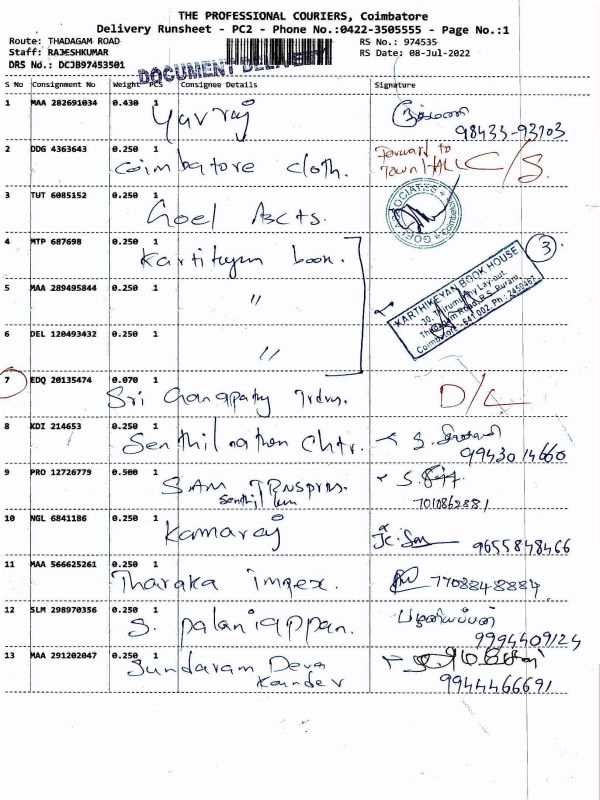 THE PROFESSIONAL COURIERS, Coimbatore
Delivery Runsheet - PC2 - Phone No.:0422-3505555 - Page No.:1
Route: THADAGAM ROAD RS No.: 974535
Staff: RAJESHKUMAR RS Date: 08-Jul-2022
DRS No.: DCJB97453501
DOCUMENT DELIVERY
S No Consignment No Weight PCS Consignee Details Signature
1 MAA 282691034 0.430 1
Yuvraj
98433-93703
2 DDG 4363643 0.250 1 Forward to
Coimbatore Cloth. Town HALL C/S.
3 TUT 6085152 0.250 1
Goel Ascts.
4 MTP 687698 0.250 1
Kartikeyan book. 3
KARTHIKEYAN BOOK HOUSE
30, Thirumurthy Lay-out,
Thadagam Road, R.S. Puram,
Coimbatore - 641 002. Ph : 2450467
5 MAA 289495844 0.250 1
"
6 DEL 120493432 0.250 1
"
7 EDQ 20135474 0.070 1
Sri Ganapathy Trdrs. D/L
8 KDI 214653 0.250 1
Senthil nathan Chtr.
9943014660
9 PRO 12726779 0.500 1
SAM
7010862881
10 NGL 6841186 0.250 1
Kamaraj
9655848466
11 MAA 566625261 0.250 1
Tharaka impex. 7708848884
12 SLM 298970356 0.250 1
S. Palaniappan. பழனியப்பன்
9994409124
13 MAA 291202047 0.250 1
Sundaram Deva
9944466691